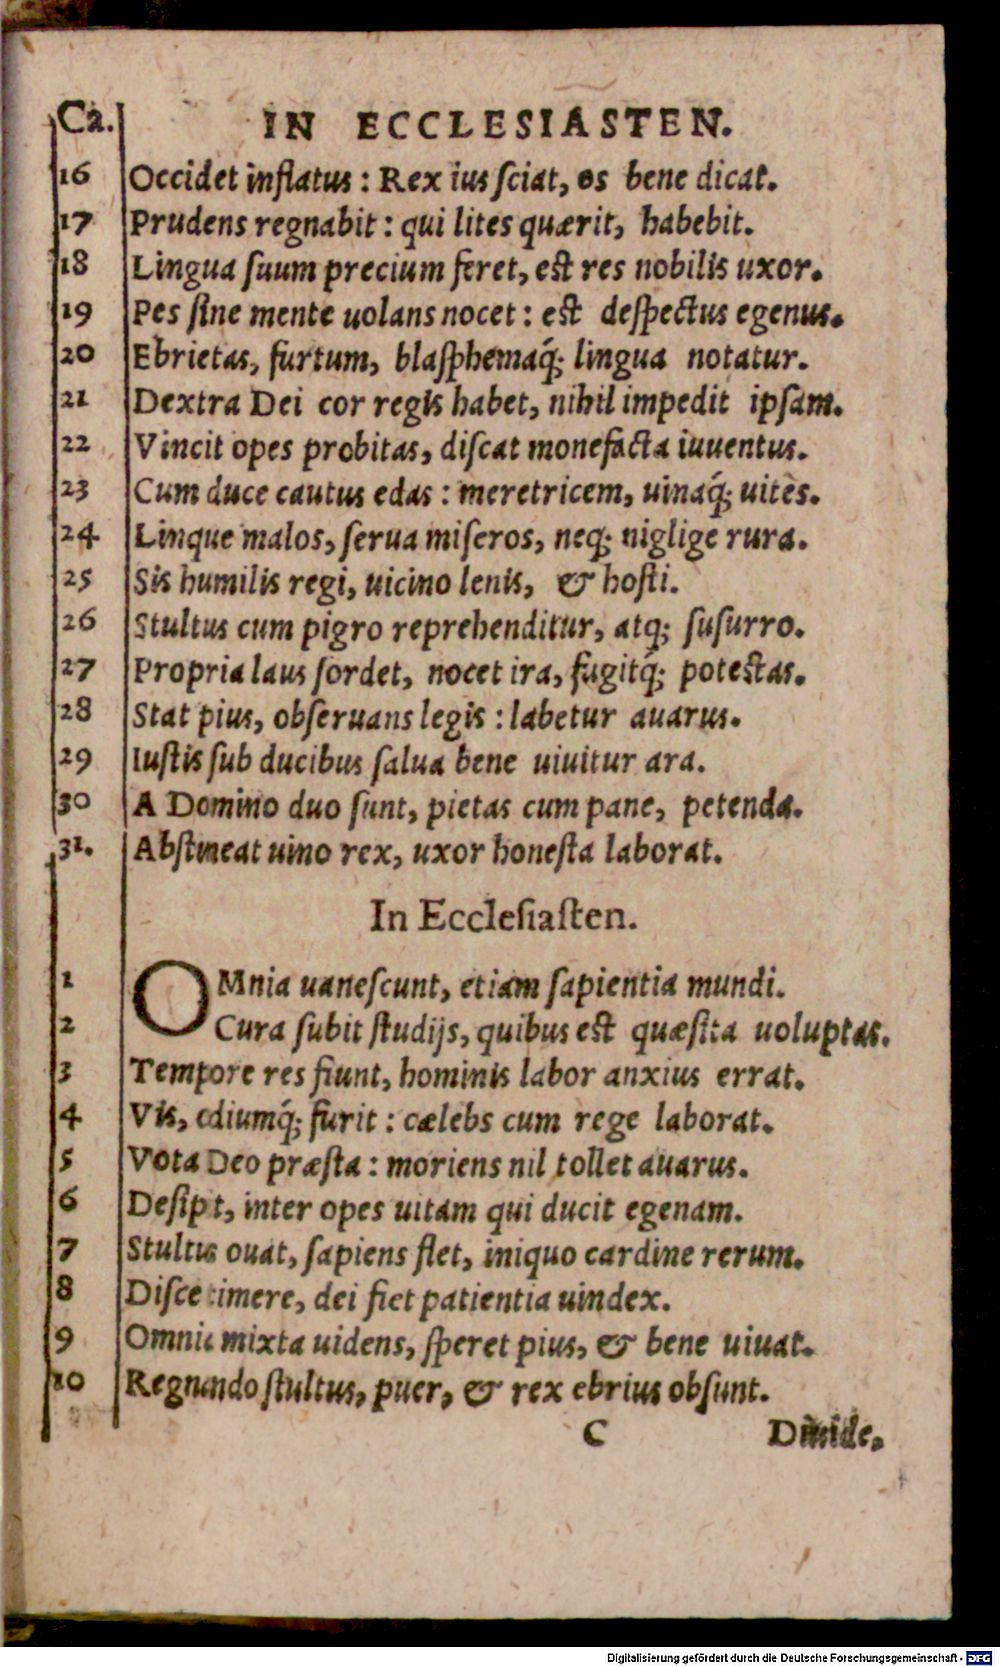 Ca. IN ECCLESIASTEN.
16 Occidet inflatus : Rex ius ſciat, os bene dicat.
17 Prudens regnabit : qui lites quærit, habebit.
18 Lingua ſuum precium feret, eſt res nobilis uxor.
19 Pes ſine mente uolans nocet : eſt deſpectus egenus.
20 Ebrietas, furtum, blaſphemaq́; lingua notatur.
21 Dextra Dei cor regis habet, nihil impedit ipſam.
22 Vincit opes probitas, diſcat monefacta iuuentus.
23 Cum duce cautus edas : meretricem, uinaq́; uites.
24 Linque malos, ſerua miſeros, neq; niglige rura.
25 Sis humilis regi, uicino lenis, & hoſti.
26 Stultus cum pigro reprehenditur, atq; ſuſurro.
27 Propria laus ſordet, nocet ira, fugitq́; poteſtas.
28 Stat pius, obſeruans legis : labetur auarus.
29 Iuſtis ſub ducibus ſalua bene uiuitur ara.
30 A Domino duo ſunt, pietas cum pane, petenda.
31. Abſtineat uino rex, uxor honeſta laborat.
In Eccleſiaſten.
1 OMnia uaneſcunt, etiam ſapientia mundi.
2 Cura ſubit ſtudijs, quibus eſt quæſita uoluptas.
3 Tempore res fiunt, hominis labor anxius errat.
4 Vis, odiumq́; furit : cælebs cum rege laborat.
5 Vota Deo præſta : moriens nil tollet auarus.
6 Deſipit, inter opes uitam qui ducit egenam.
7 Stultus ouat, ſapiens flet, iniquo cardine rerum.
8 Diſce timere, dei fiet patientia uindex.
9 Omnia mixta uidens, ſperet pius, & bene uiuat.
10 Regnando ſtultus, puer, & rex ebrius obſunt.
C Diuide.
Digitalisierung gefördert durch die Deutsche Forschungsgemeinschaft - DFG